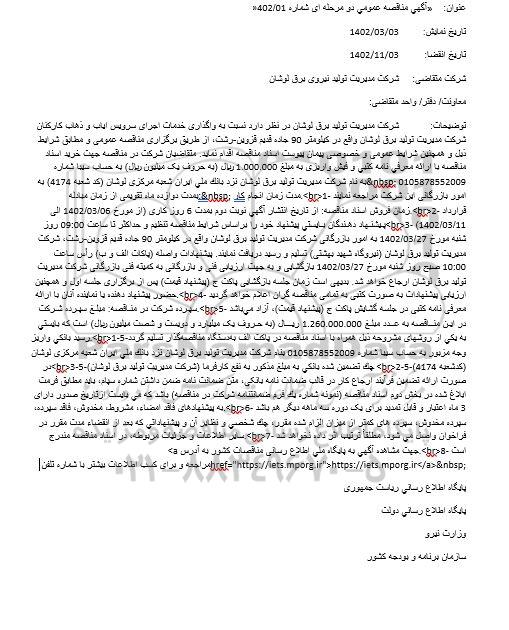 عنوان: «آگهي مناقصه عمومي دو مرحله ای شماره 402/01»
تاریخ نمایش: 1402/03/03
تاریخ انقضا: 1402/11/03
شرکت متقاضی: شرکت مدیریت تولید نیروی برق لوشان
معاونت/ دفتر/ واحد متقاضی:
توضیحات: شرکت مدیریت تولید برق لوشان در نظر دارد نسبت به واگذاری خدمات اجرای سرویس ایاب و ذهاب کارکنان
شرکت مدیریت تولید برق لوشان واقع در کیلومتر 90 جاده قدیم قزوین-رشت، از طریق برگزاری مناقصه عمومی و مطابق شرایط
ذیل و همچنین شرایط عمومی و خصوصی پیمان پیوست اسناد مناقصه اقدام نماید. متقاضیان شرکت در مناقصه جهت خرید اسناد
مناقصه با ارائه معرفي نامه كتبي و فيش واريزی به مبلغ 1.000.000 ريال (به حروف یک میلیون ریال) به حساب سيبا شماره
0105878552009 &nbsp;به نام شرکت مدیریت تولید برق لوشان نزد بانك ملي ايران شعبه مرکزی لوشان (کد شعبه 4174) به
امور بازرگانی این شرکت مراجعه نمایند <br>1-مدت زمان انجام کار &nbsp;:بمدت دوازده ماه تقویمی از زمان مبادله
قرارداد <br>2-زمان فروش اسناد مناقصه: از تاریخ انتشار آگهی نوبت دوم بمدت 6 روز کاری (از مورخ 1402/03/06 الی
1402/03/11) <br>3-پیشنهاد دهندگان بایستی پیشنهاد خود را براساس شرایط مناقصه تنظیم و حداکثر تا ساعت 09:00 روز
شنبه مورخ 1402/03/27 به امور بازرگانی شرکت مدیریت تولید برق لوشان واقع در کیلومتر 90 جاده قدیم قزوین-رشت، شرکت
مدیریت تولید برق لوشان (نیروگاه شهید بهشتی) تسلیم و رسید دریافت نمایند. پیشنهادات واصله (پاکات الف و ب) رأس ساعت
10:00 صبح روز شنبه مورخ 1402/03/27 بازگشایی و به جهت ارزیابی فنی و بازرگانی به کمیته فنی بازرگانی شرکت مدیریت
تولید برق لوشان ارجاع خواهد شد. بدیهی است زمان جلسه بازگشایی پاکت ج (پیشنهاد قیمت) پس از برگزاری جلسه اول و همچنین
ارزیابی پیشنهادات به صورت کتبی به تمامی مناقصه گران اعلام خواهد گردید <br>4-حضور پیشنهاد دهنده یا نماینده آنان با ارائه
معرفی نامه کتبی در جلسه گشایش پاکت ج (پیشنهاد قیمت)، آزاد می‌باشد <br>5-سپرده شركت در مناقصه: مبلغ سپرده شرکت
در این مناقصه به عدد مبلغ 1.260.000.000 ریال (به حروف یک میلیارد و دویست و شصت میلیون ریال) است که بایستی
به یکی از روشهای مشروحه ذیل همراه با اسناد مناقصه در پاکت الف به‌دستگاه مناقصه‌گذار تسلیم گردد <br>1-5-رسید بانکی واریز
وجه مزبور به حساب سیبا شماره 0105878552009 بنام شرکت مدیریت تولید برق لوشان نزد بانك ملي ايران شعبه مرکزی لوشان
(کدشعبه 4174) <br>2-5-چک تضمین شده بانکی به مبلغ مذکور به نفع کارفرما (شرکت مدیریت تولید برق لوشان) <br>3-5-در
صورت ارائه تضمین فرآیند ارجاع کار در قالب ضمانت نامه بانکی، متن ضمانت نامه ضمن داشتن شماره سپام، باید مطابق فرمت
ابلاغ شده در بخش دوم اسناد مناقصه (نمونه شماره یک فرم ضمانتنامه شرکت در مناقصه) باشد که می بایست ازتاریخ صدور دارای
3 ماه اعتبار و قابل تمدید برای یک دوره سه ماهه دیگر هم باشد <br>6-به پیشنهادهای فاقد امضاء، مشروط، مخدوش، فاقد سپرده،
سپرده مخدوش، سپرده های کمتر از میزان الزام شده مقرر، چک شخصی و نظایر آن و پیشنهاداتی که بعد از انقضاء مدت مقرر در
فراخوان واصل می شود، مطلقاً ترتیب اثر داده نخواهد شد <br>7-سایر اطلاعات و جزئیات مربوطه، در اسناد مناقصه مندرج
است <br>8-جهت مشاهده آگهی به پایگاه ملی اطلاع رسانی مناقصات کشور به آدرس <a
href="https://iets.mporg.ir">https://iets.mporg.ir</a>&nbsp; مراجعه و برای کسب اطلاعات بیشتر با شماره تلفن
پایگاه اطلاع رسانی ریاست جمهوری
پایگاه اطلاع رسانی دولت
وزارت نیرو
سازمان برنامه و بودجه کشور